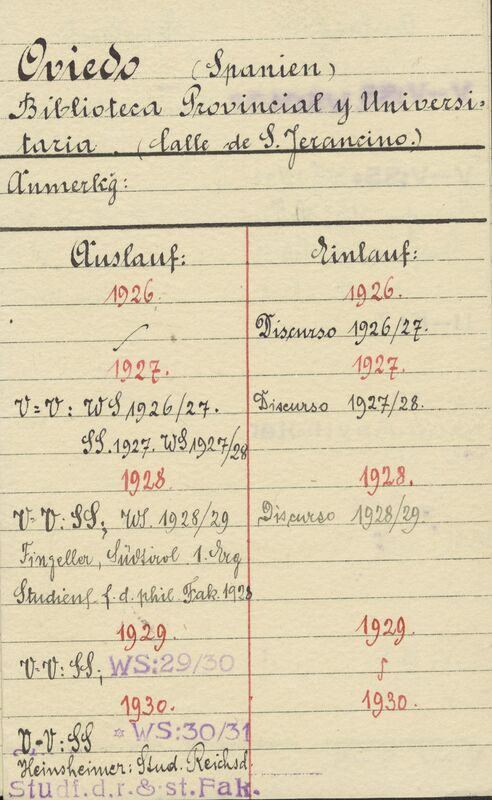 Oviedo (Spanien)
Biblioteca Provincial y Universi-
taria. (Calle de S. Jerancino.)
Anmerkg:
Auslauf:
1926.
1927.
V=V: WS 1926/27.
SS. 1927. WS 1927/28
1928
V-V: SS; WS. 1928/29
Fingeller, Südtirol 1. Erg
Studienf. f. d. phil. Fak. 1928
1929.
V-V: SS; WS:29/30
1930.
V.-V: SS * WS:30/31
Heinsheimer: Stud. Reichsd.
Studf.d.r.& st.Fak.
Einlauf:
1926.
Discurso 1926/27.
1927.
Discurso 1927/28.
1928.
Discurso 1928/29.
1929.
1930.